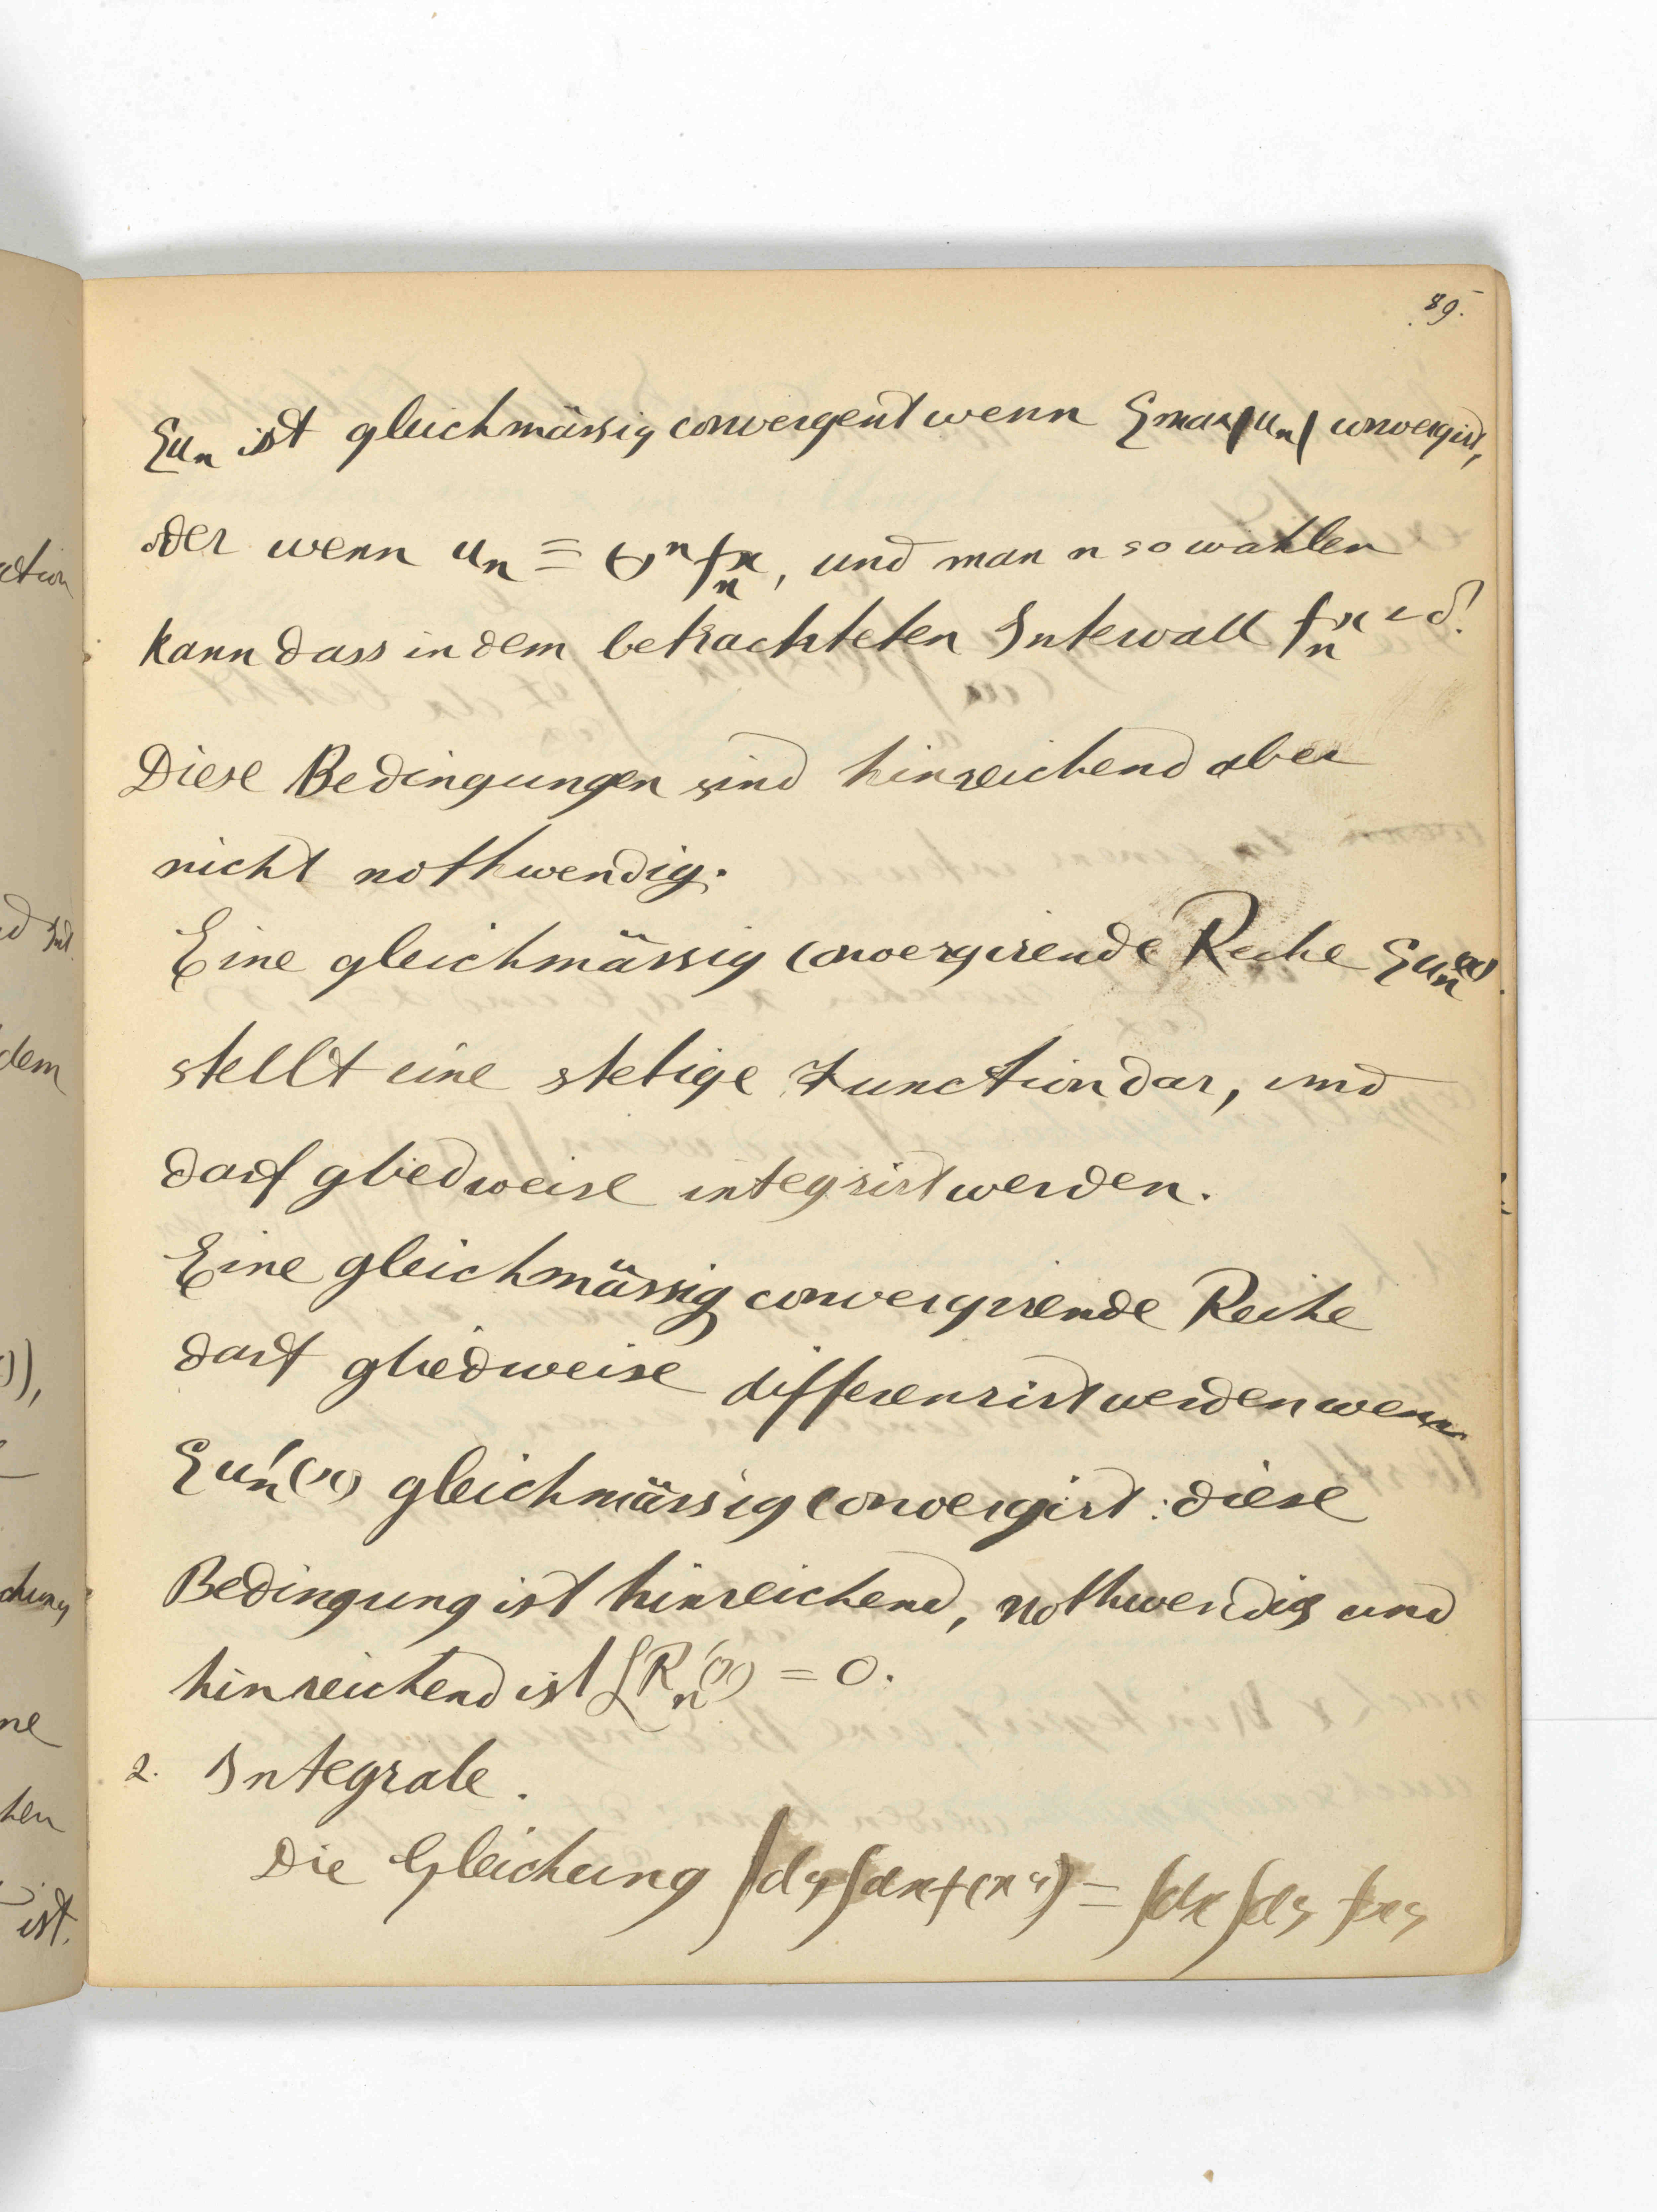 89.
Σu_n ist gleichmässig convergent wenn Σmax|u_n| convergirt,
oder wenn u_n = (-)^n f_n x, und man n so wählen
kann dass in dem betrachteten Intervall f_n x < δ.
Diese Bedingungen sind hinreichend aber
nicht nothwendig.
Eine gleichmässig convergirende Reihe Σu_n(x)
stellt eine stetige Function dar, und
darf gliedweise integrirt werden.
Eine gleichmässig convergirende Reihe
darf gliedweise differenzirt werden wenn
Σu'_n(x) gleichmässig convergirt: diese
Bedingung ist hinreichend, nothwendig und
hinreichend ist L R'_n(x) = 0.
2. Integrale.
Die Gleichung ∫dy∫dx f(xy) = ∫dx∫dy fxy
ction
d Int.
dem
)),
chung
ne
hen
ist.